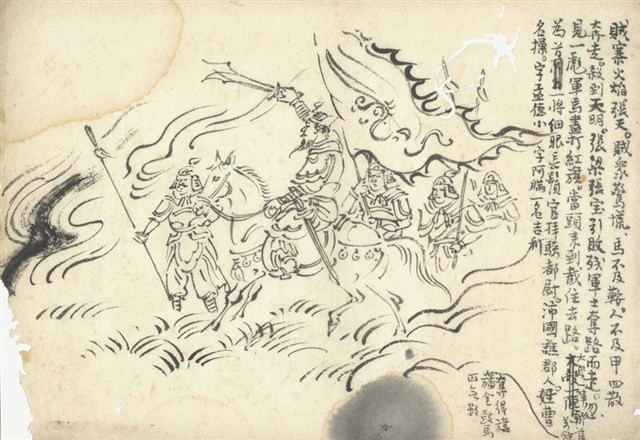 賊寨火焰張天。賊眾驚慌。馬不及鞍。人不及甲四散
奔走。殺到天明。張梁張宝引敗殘軍士奪路而走。忽
見一彪軍馬盡打紅旗。當頭來到截住去路。
為首一將細眼長髯官拜騎都尉。沛國譙郡人姓曹
名操。字孟德小字阿瞞一名吉利
奪得旗
旛金鼓馬
匹無數